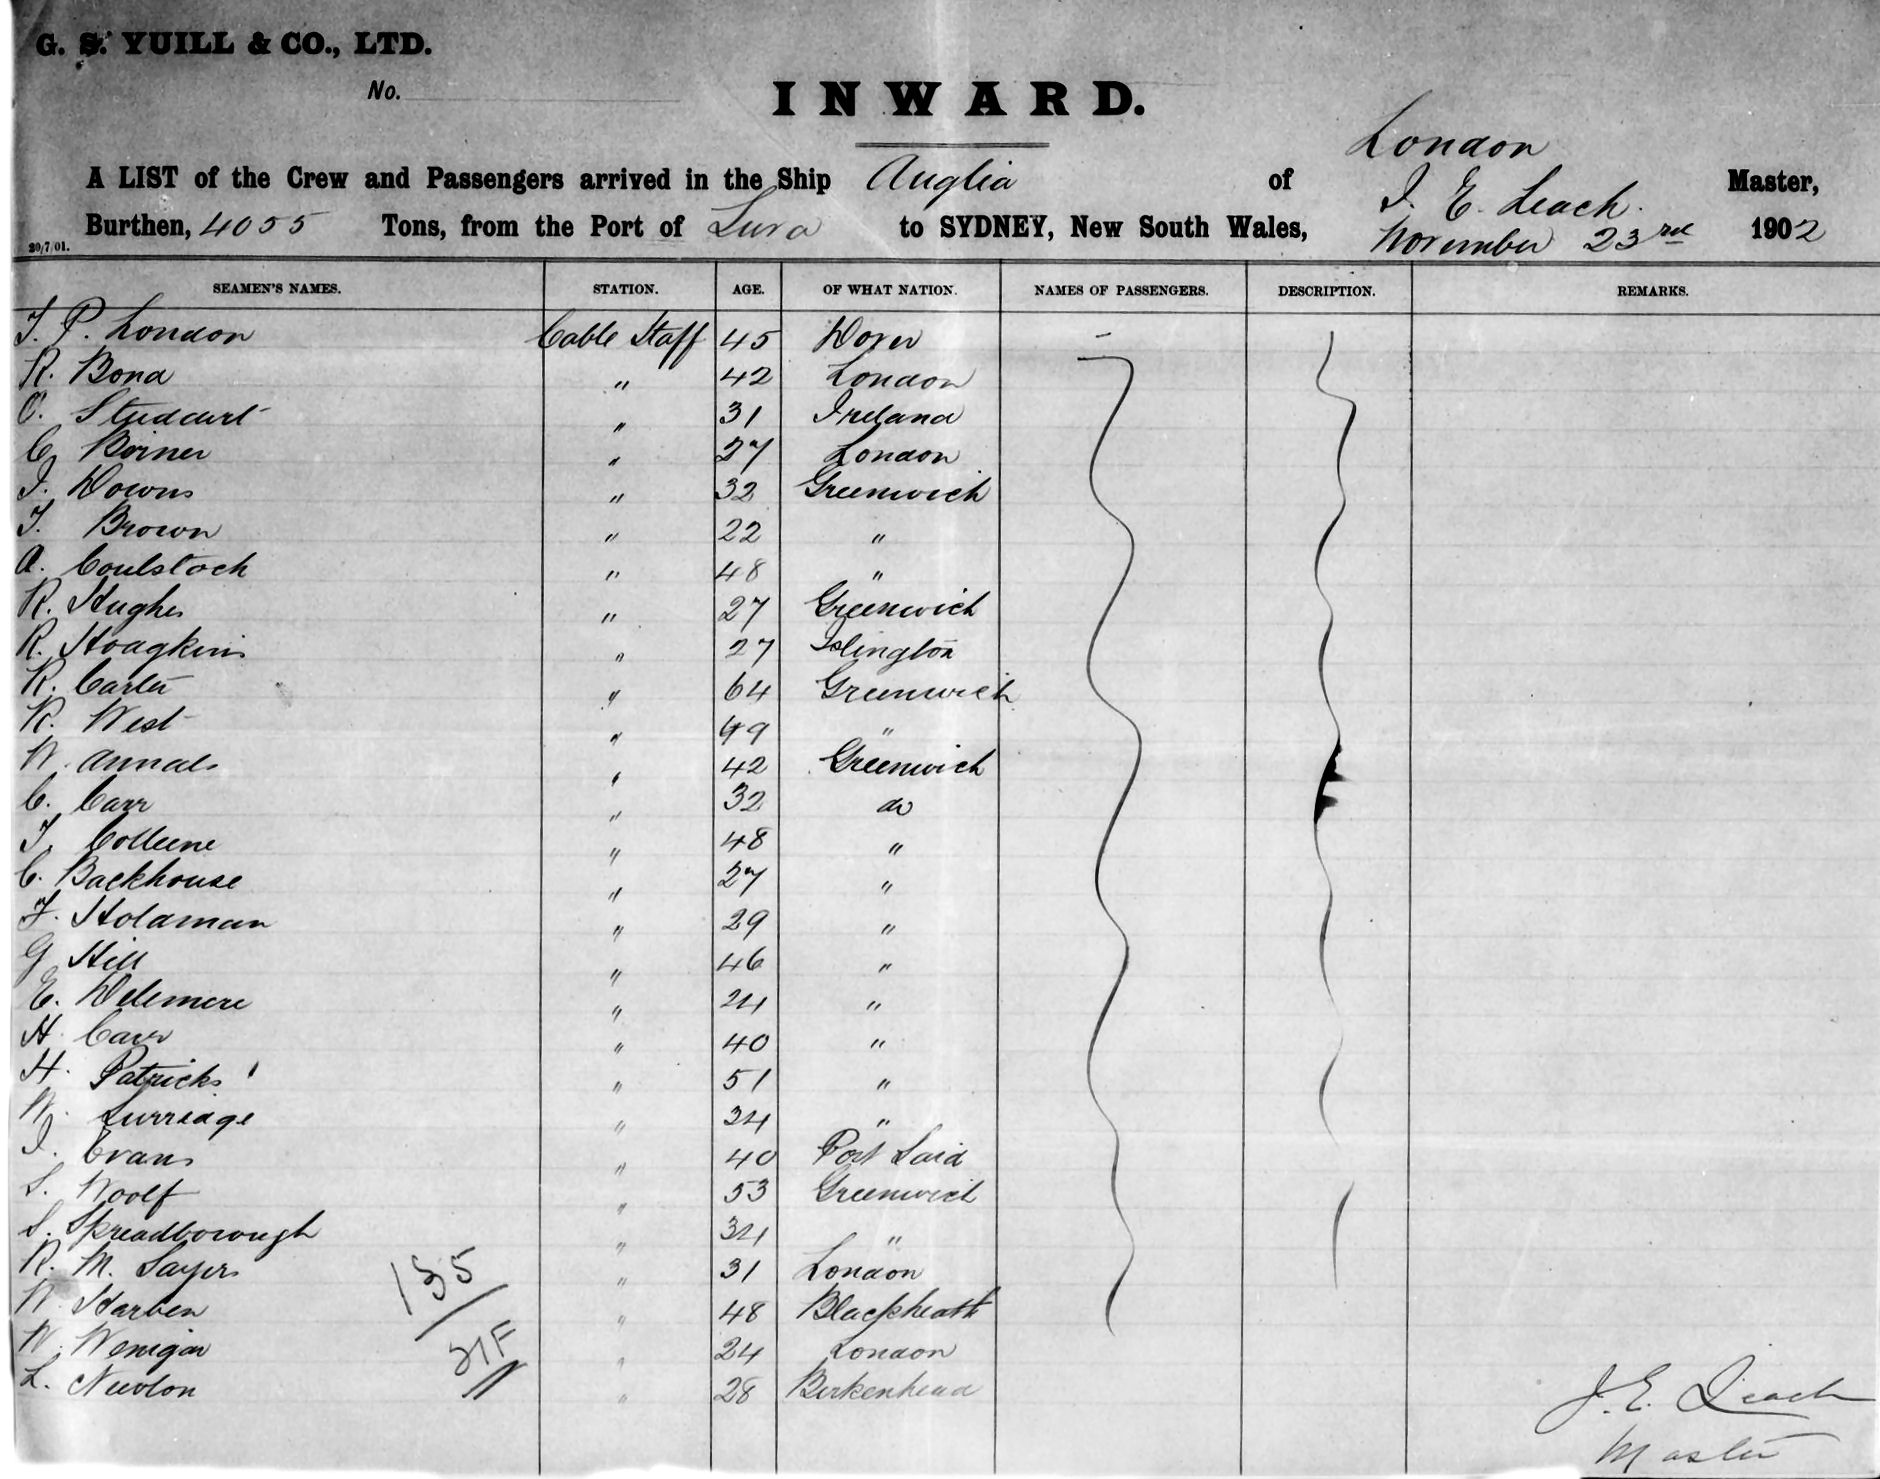 G. S. YUILL & CO., LTD.
No.
INWARD.
London
A LIST of the Crew and Passengers arrived in the Ship Anglia of J. E. Leach. Master,
Burthen, 4055 Tons, from the Port of Suva to SYDNEY, New South Wales, November 23rd 1902
20/7/01.
SEAMEN'S NAMES. STATION. AGE. OF WHAT NATION. NAMES OF PASSENGERS. DESCRIPTION. REMARKS.
T. P. London Cable Staff 45 Dover
R. Bond " 42 London
O. Studdert " 31 Ireland
C. " 27 London
J. Downs " 32 Greenwich
T. Brown " 22 "
A. Coulstock " 48 "
R. Hughes " 27 Greenwich
R. Hodgkins " 27 Islington
R. Carter " 64 Greenwich
R. West " 49 "
W. Annals " 42 Greenwich
C. Carr " 32 do
T. " 48 "
C. Backhouse " 27 "
F. Holdman " 29 "
G Hill " 46 "
E. Delemere " 24 "
H. Carr " 40 "
H. Patricks " 51 "
W. Surridge " 34 "
J. Evans " 40 Port Said
S. Woolf " 53 Greenwich
S. Spreadborough " 34 "
R. M. Sayers " 31 London
W. Harben " 48 Blackheath
W. " 24 London
L. Newton " 28 Birkenhead
J. E. Leach
Master